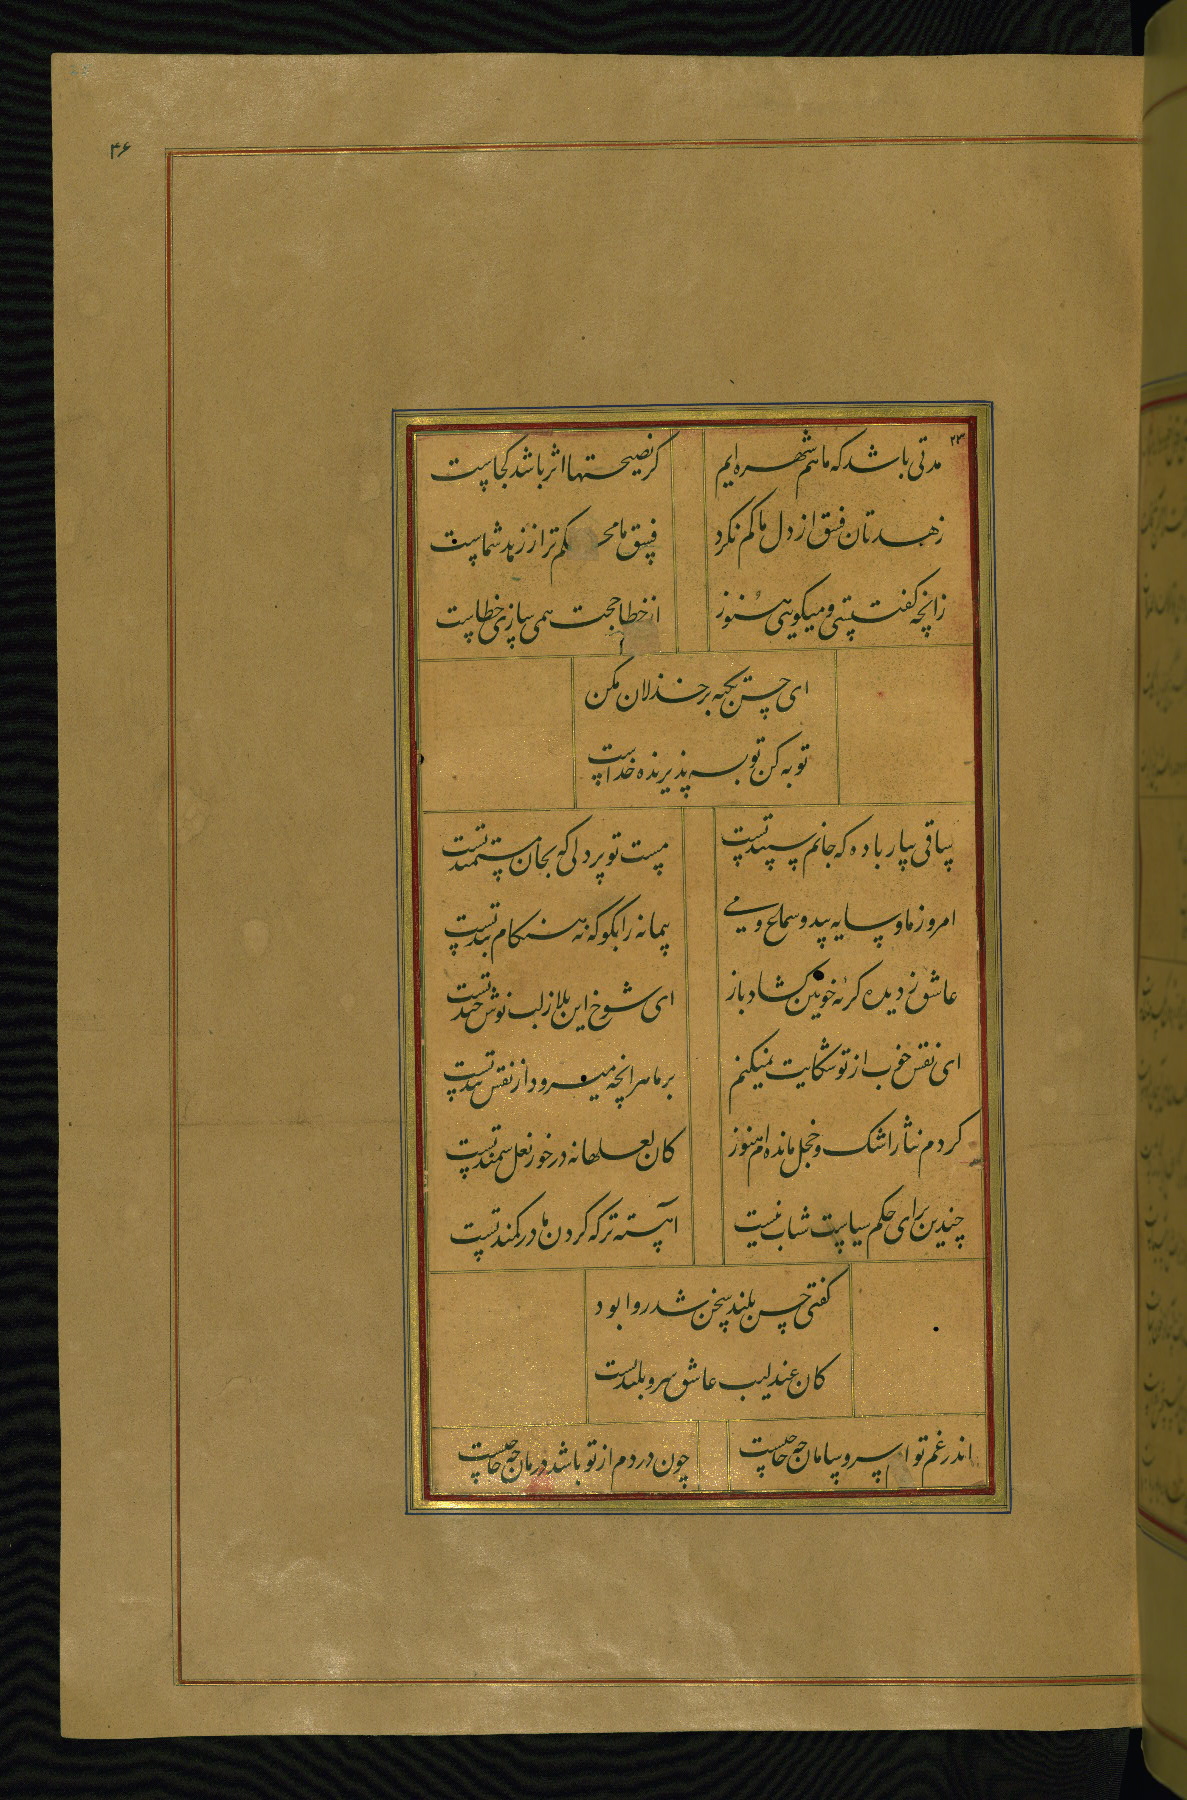 ۴۶
۲۳
مدتی باشد که ما هم شهره ایم
کر نصیحتها اثر باشد کجاست
زهدتان فسق از دل ما کم نکرد
فسق ما محکم تر از زهد شماست
زانچه کفت بتی و میکویی هنوز
از خطا حجت همی سازی خطاست
ای حسن تکیه بر خذلان مکن
توبه کن توبه پذیرنده خداست
ساقی بیار باده که جانم سپند تست
مست تو بر دلی که بجان مستمند تست
امروز ما و سایه بید و سماع و می
پیمانه را بکو که نه هنکام بند تست
عاشق ز دیده کریه خونین کشاد باز
ای شوخ این بلا ز لب نوش خند تست
ای نفس خوب از تو شکایت نمیکنم
بر ما هر انچه میرود از نفس بند تست
کردم نثار اشک و خجل مانده ام هنوز
کان لعلها نه درخور نعل سمند تست
چندین برای حکم سیاست شتاب نیست
اهسته تر که کردن ما در کمند تست
کفتی حسن بلند سخن شد روا بود
کان عندلیب عاشق سرو بلند تست
اندر غم تو ام سر و سامان چه حاجتست
چون دردم از تو باشد درمان چه حاجتست